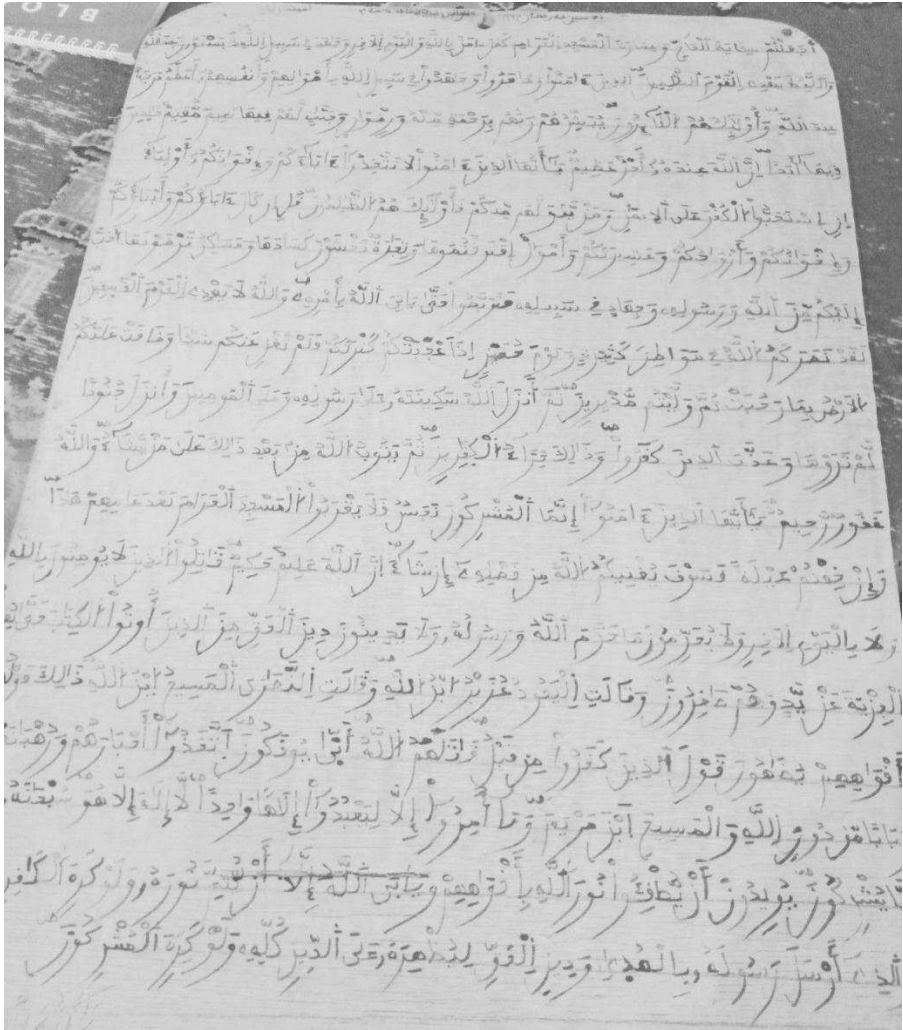 BLO
أجعلتم سقاية الحاج وعمارة المسجد الحرام كمن ءامن بالله واليوم الاخر وجهد في سبيل الله لا يستوون عند الله
والله لا يهدي القوم الظلمين الذين ءامنوا وهاجروا وجهدوا في سبيل الله بأموالهم وأنفسهم أعظم درجة
عند الله وأولئك هم الفائزون يبشرهم ربهم برحمة منه ورضوان وجنت لهم فيها نعيم مقيم خلدين
فيها أبدا إن الله عنده أجر عظيم يأيها الذين ءامنوا لا تتخذوا ءاباءكم وإخوانكم أولياء
ان استحبوا الكفر على الايمن ومن يتولهم منكم فأولئك هم الظلمون قل ان كان ءاباؤكم وأبناؤكم
وإخوانكم وأزواجكم وعشيرتكم وأموال اقترفتموها وتجارة تخشون كسادها ومسكن ترضونها أحب
إليكم من الله ورسوله وجهاد في سبيله فتربصوا حتى ياتي الله بأمره والله لا يهدي القوم الفسقين
لقد نصركم الله في مواطن كثيرة ويوم حنين إذ اعجبتكم كثرتكم فلم تغن عنكم شيئا وضاقت عليكم
الارض بما رحبت ثم وليتم مدبرين ثم أنزل الله سكينته على رسوله وعلى المومنين وأنزل جنودا
لم تروها وعذب الذين كفروا وذالك جزاء الكفرين ثم يتوب الله من بعد ذالك على من يشاء والله
غفور رحيم يأيها الذين ءامنوا إنما المشركون نجس فلا يقربوا المسجد الحرام بعد عامهم هذا
وإن خفتم عيلة فسوف يغنيكم الله من فضله إن شاء ان الله عليم حكيم قاتلوا الذين لا يومنون بالله
ولا باليوم الاخر ولا يحرمون ما حرم الله ورسوله ولا يدينون دين الحق من الذين أوتوا الكتاب حتى يعطوا
الجزية عن يد وهم صاغرون وقالت اليهود عزير ابن الله وقالت النصارى المسيح ابن الله ذالك قولهم
بأفواههم يضاهون قول الذين كفروا من قبل قاتلهم الله أنى يوفكون اتخذوا أحبارهم ورهبانهم
أربابا من دون الله والمسيح ابن مريم وما أمروا إلا ليعبدوا إلاها واحدا لا إلاه إلا هو سبحانه
عما يشركون يريدون أن يطفئوا نور الله بأفواههم ويابى الله إلا أن يتم نوره ولو كره الكافرون
الذي أرسل رسوله بالهدى ودين الحق ليظهره على الدين كله ولو كره المشركون